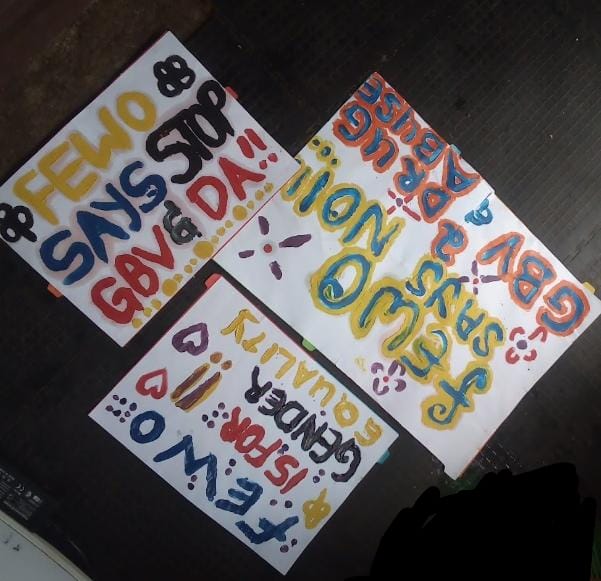 FEWO
SAYS STOP
GBV & DA!!
fEWO
SAYS NO!!
2
GBV & DRUG
ABUSE
fEWO
IS FOR !!
GENDER
EQUALITY